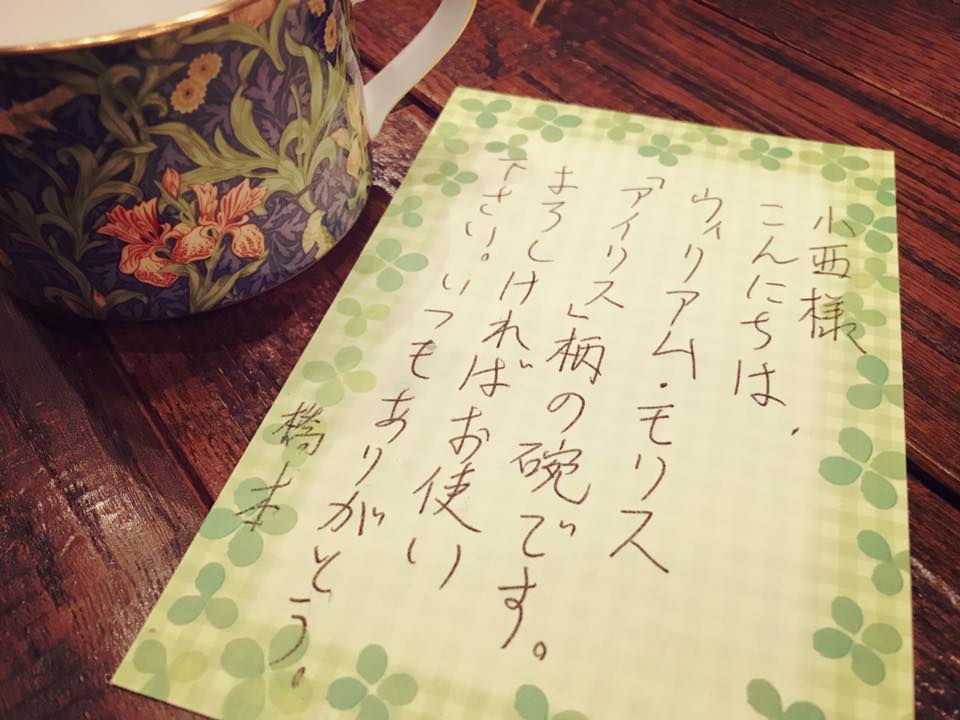 小西様
こんにちは、
ウィリアム・モリス
「アイリス」柄の碗です。
よろしければお使い
下さい。いつもありがとう。
橋本